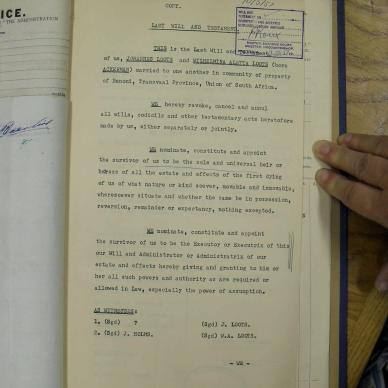 ICE.
THE ADMINISTRATION
COPY.
LAST WILL AND TESTAMENT.
THIS is the Last Will and
of us, JOHANNES LOOTS and WILHELMINA ALETTA LOOTS (born
ACKERMAN) married to one another in community of property
of Benoni, Transvaal Province, Union of South Africa.
WE hereby revoke, cancel and annul
all wills, codicils and other testamentary acts heretofore
made by us, either separately or jointly.
WE nominate, constitute and appoint
the survivor of us to be the sole and universal heir or
heress of all the estate and effects of the first dying
of us of what nature or kind soever, movable and immovable,
wheresoever situate and whether the same be in possession,
reversion, remainder or expectancy, nothing excepted.
WE nominate, constitute and appoint
the survivor of us to be the Executor or Executrix of this
our Will and Administrator or Administratrix of our
estate and effects hereby giving and granting to him or
her all such powers and authority as are required or
allowed in Law, especially the power of assumption.
AS WITNESSES:
1. (Sgd) ? (Sgd) J. LOOTS.
2. (Sgd) J. HOLMS. (Sgd) W.A. LOOTS.
- WE -